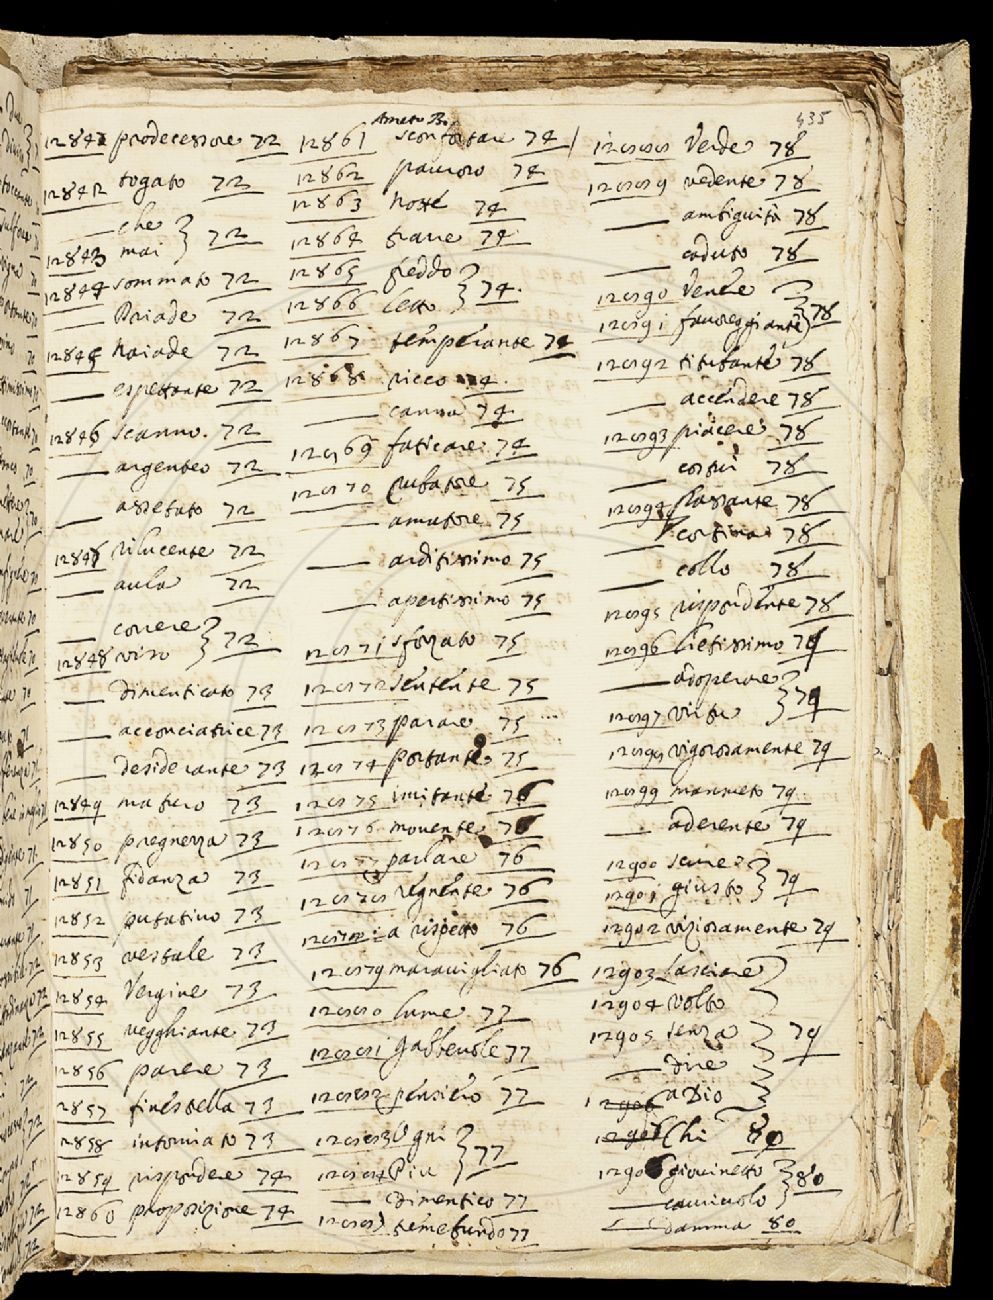 435
Ameto Bo.
12841 prodecessore 72
12842 togato 72
che
12843 mai } 72
12844 sommato 72
Driade 72
12845 Naiade 72
espettante 72
12846 scanno. 72
argenteo 72
assetato 72
12847 rilucente 72
aula 72
correre
12848 viso } 72
dimenticato 73
acconciatrice 73
desiderante 73
12849 maturo 73
12850 pregnezza 73
12851 fidanza 73
12852 putativo 73
12853 vestale 73
12854 Vergine 73
12855 vegghiante 73
12856 parere 73
12857 finestella 73
12858 intorniato 73
12859 rispondere 74
12860 proposizione 74
12861 sconfortare 74
12862 pauroso 74
12863 hoste 74
12864 trave 74
12865 freddo
12866 letto } 74.
12867 temperante 74
12868 ricco 74.
canna 74
12869 faticare 74
12870 rubatore 75
amatore 75
arditissimo 75
apertissimo 75
12871 sforzato 75
12872 sentente 75
12873 parare 75
12874 portante 75
12875 imitante 76
12876 movente 76
12877 parlare 76
12878 regnente 76
a rispetto 76
12879 maravigliato 76
12880 lume 77
12881 gabbevole 77
12882 pensiero 77
12883 Ogni
12884 Più } 77
dimentico 77
12885 temefundo 77
12888 Verde 78
12889 vedente 78
ambiguità 78
caduto 78
12890 Venere
12891 favoreggiante } 78
12892 titubante 78
accendere 78
12893 piacere 78
costui 78
12894 plasmante 78
cortina 78
collo 78
12895 rispondente 78
12896 lietissimo 79
adoperare
12897 virtu } 79
12898 vigorosamente 79
12899 mansueto 79.
aderente 79
12900 scure
12901 giusto } 79
12902 viziosamente 79
12903 lasciare
12904 volto
12905 senza } 79
dire
12906 adio
Chi 80
12906 giovinetto
cavriuolo } 80
damma 80